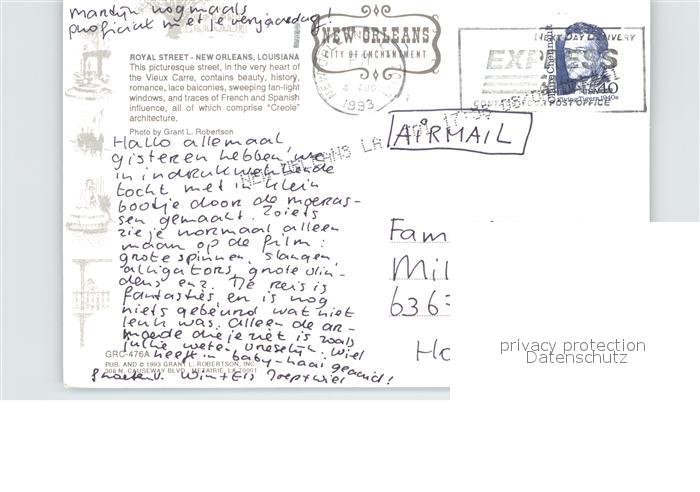 Marolijn nogmaals
proficiat met je verjaardag!
NEW ORLEANS
CITY OF ENCHANTMENT
NEXT DAY DELIVERY
EXPRESS
POST OFFICE
40
4 AUG
1993
ROYAL STREET - NEW ORLEANS, LOUSIANA
This picturesque street, in the very heart of
the Vieux Carre, contains beauty, history,
romance, lace balconies, sweeping fan-light
windows, and traces of French and Spanish
influence, all of which comprise "Creole"
architecture.
Photo by Grant L. Robertson
NEW ORLEANS LA
AIRMAIL
Hallo allemaal,
gisteren hebben we
in indrukwekkende
tocht met in klein
bootje door de moeras-
sen gemaakt. Zoiets
zie je normaal alleen
maar op de film:
grote spinnen, slangen,
alligators, grote vlin-
ders enz. De reis is
fantasties, en is nog
niets gebeurd wat niet
leuk was. alleen de ar-
moede die je ziet is zoals
jullie weten vreselijk. Wiel
heeft in baby-haai geaaid!
Groeten v. Wim + Els
Fam
Mil
636
Ho
GRC-476A
PUB. AND © 1993 GRANT L. ROBERTSON, INC.
308 N. CAUSEWAY BLVD., METAIRIE, LA 70001
privacy protection
Datenschutz